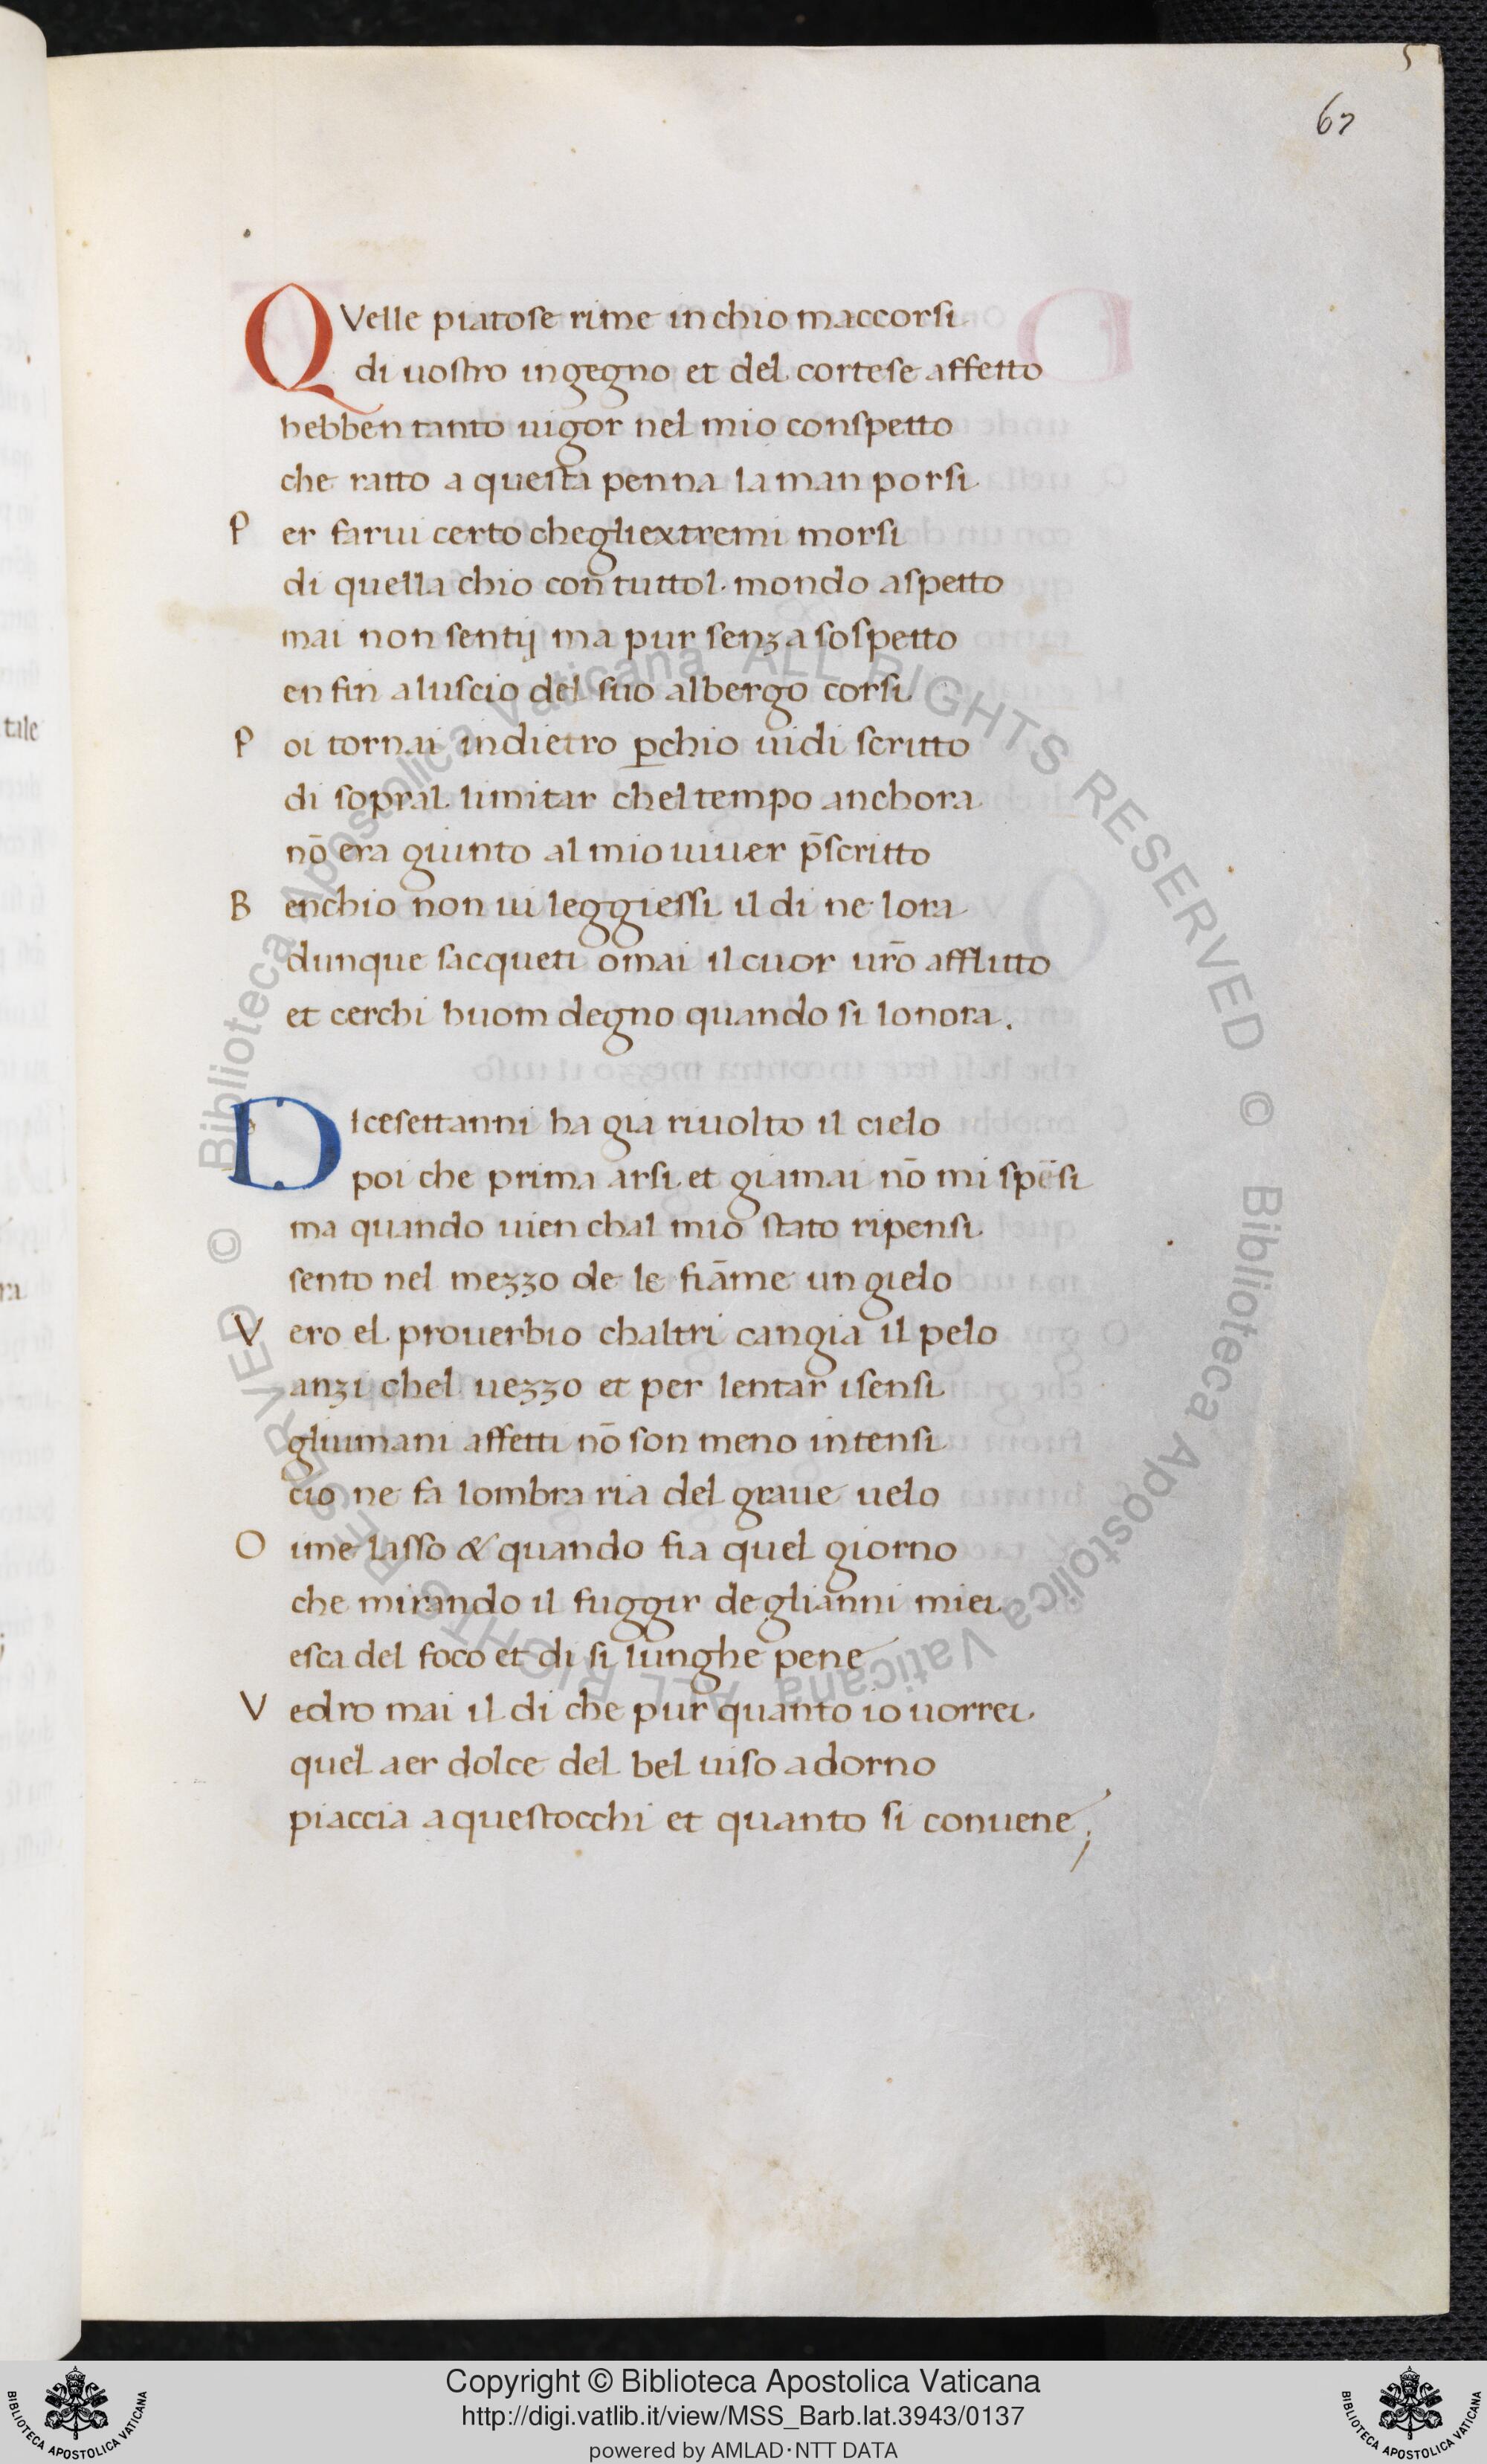 67
QVelle piatose rime in chio maccorsi
di uostro ingegno et del cortese affetto
hebben tanto uigor nel mio conspetto
che ratto a questa penna la man porsi
P er farui certo chegliextremi morsi
di quella chio con tuttol mondo aspetto
mai non sentij ma pur senza sospetto
en fin a luscio del suo albergo corsi
P oi tornai indietro ꝑchio uidi scritto
di sopral limitar chel tempo anchora
nō era giunto al mio uiuer p̄scritto
B enchio non ui leggiessi il di ne lora
dunque sacqueti omai il cuor uro̅ afflitto
et cerchi huom degno quando si lonora.
DIcesettanni ha gia riuolto il cielo
poi che prima arsi et giamai nō mi spēsi
ma quando uien chal mio stato ripensi
sento nel mezzo de le fiāme un gielo
V ero el prouerbio chaltri cangia il pelo
anzi chel uezzo et per lentar isensi
gliumani affetti nō son meno intensi
cio ne fa lombra ria del graue uelo
O ime lasso & quando fia quel giorno
che mirando il fuggir deglianni miei
esca del foco et di si lunghe pene
V edro mai il di che pur quanto io uorrei
quel aer dolce del bel uiso adorno
piaccia a questocchi et quanto si conuene;
tile
Copyright © Biblioteca Apostolica Vaticana
http://digi.vatlib.it/view/MSS_Barb.lat.3943/0137
powered by AMLAD·NTT DATA
BIBLIOTECA APOSTOLICA VATICANA
BIBLIOTECA APOSTOLICA VATICANA
© Biblioteca Apostolica Vaticana ALL RIGHTS RESERVED © Biblioteca Apostolica Vaticana ALL RIGHTS RESERVED